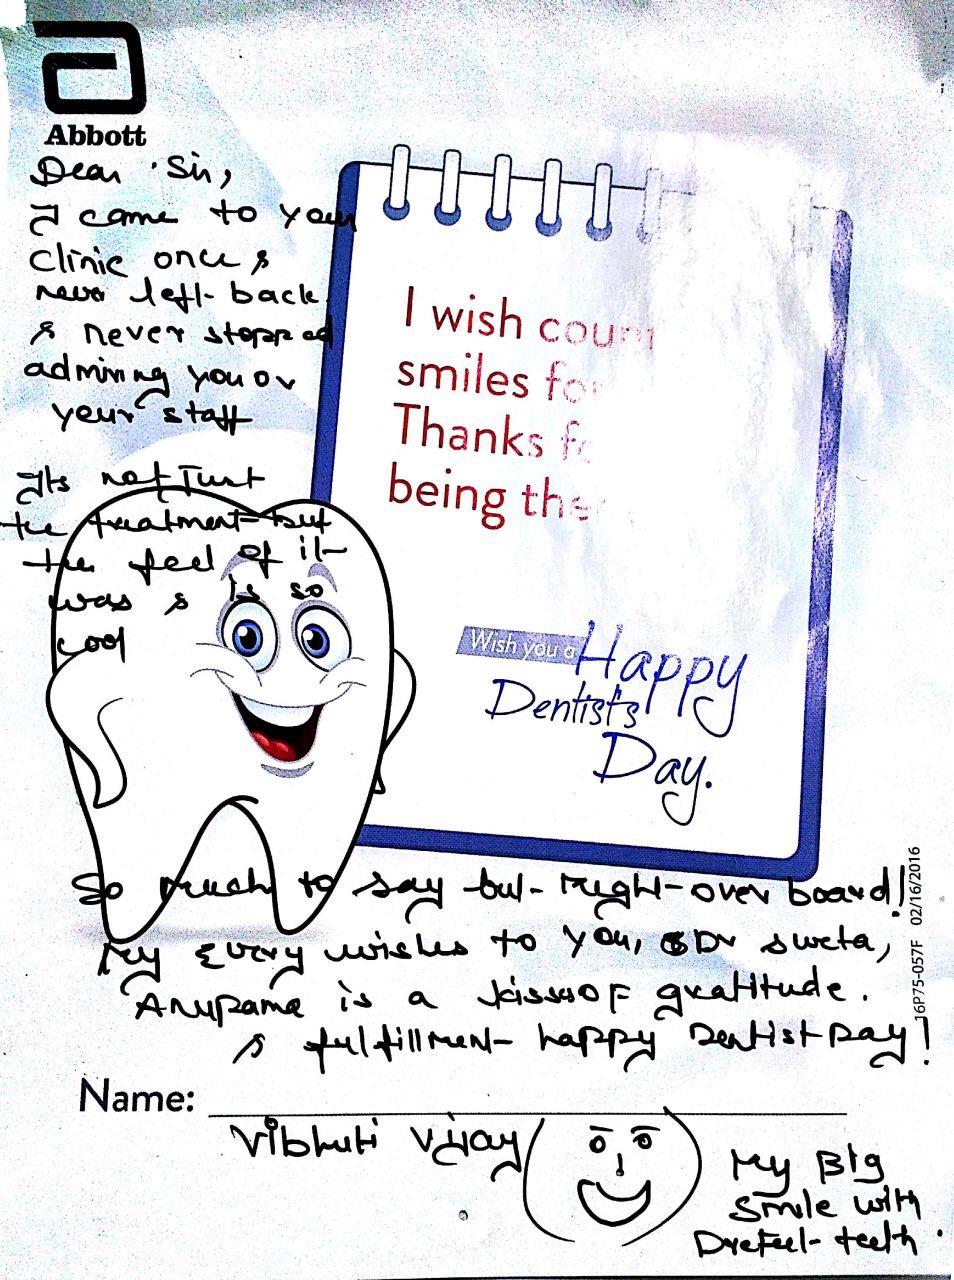 Abbott
Dear Sir,
I came to your
clinic once &
never left back
& never stopped
admiring you or
your staff
Its not Just
the treatment but
the feel of it
was & is so
cool
I wish coun
smiles fo
Thanks fo
being the
Wish you a Happy
Dentist's
Day.
So much to say but might over board!
My every wishes to you, Dr Sweta,
Anupama is a of gratitude.
& fulfillment happy Dentist Day!
16P75-057F 02/16/2016
Name:
Vibhuti Vijay
My Big
Smile with
teeth.